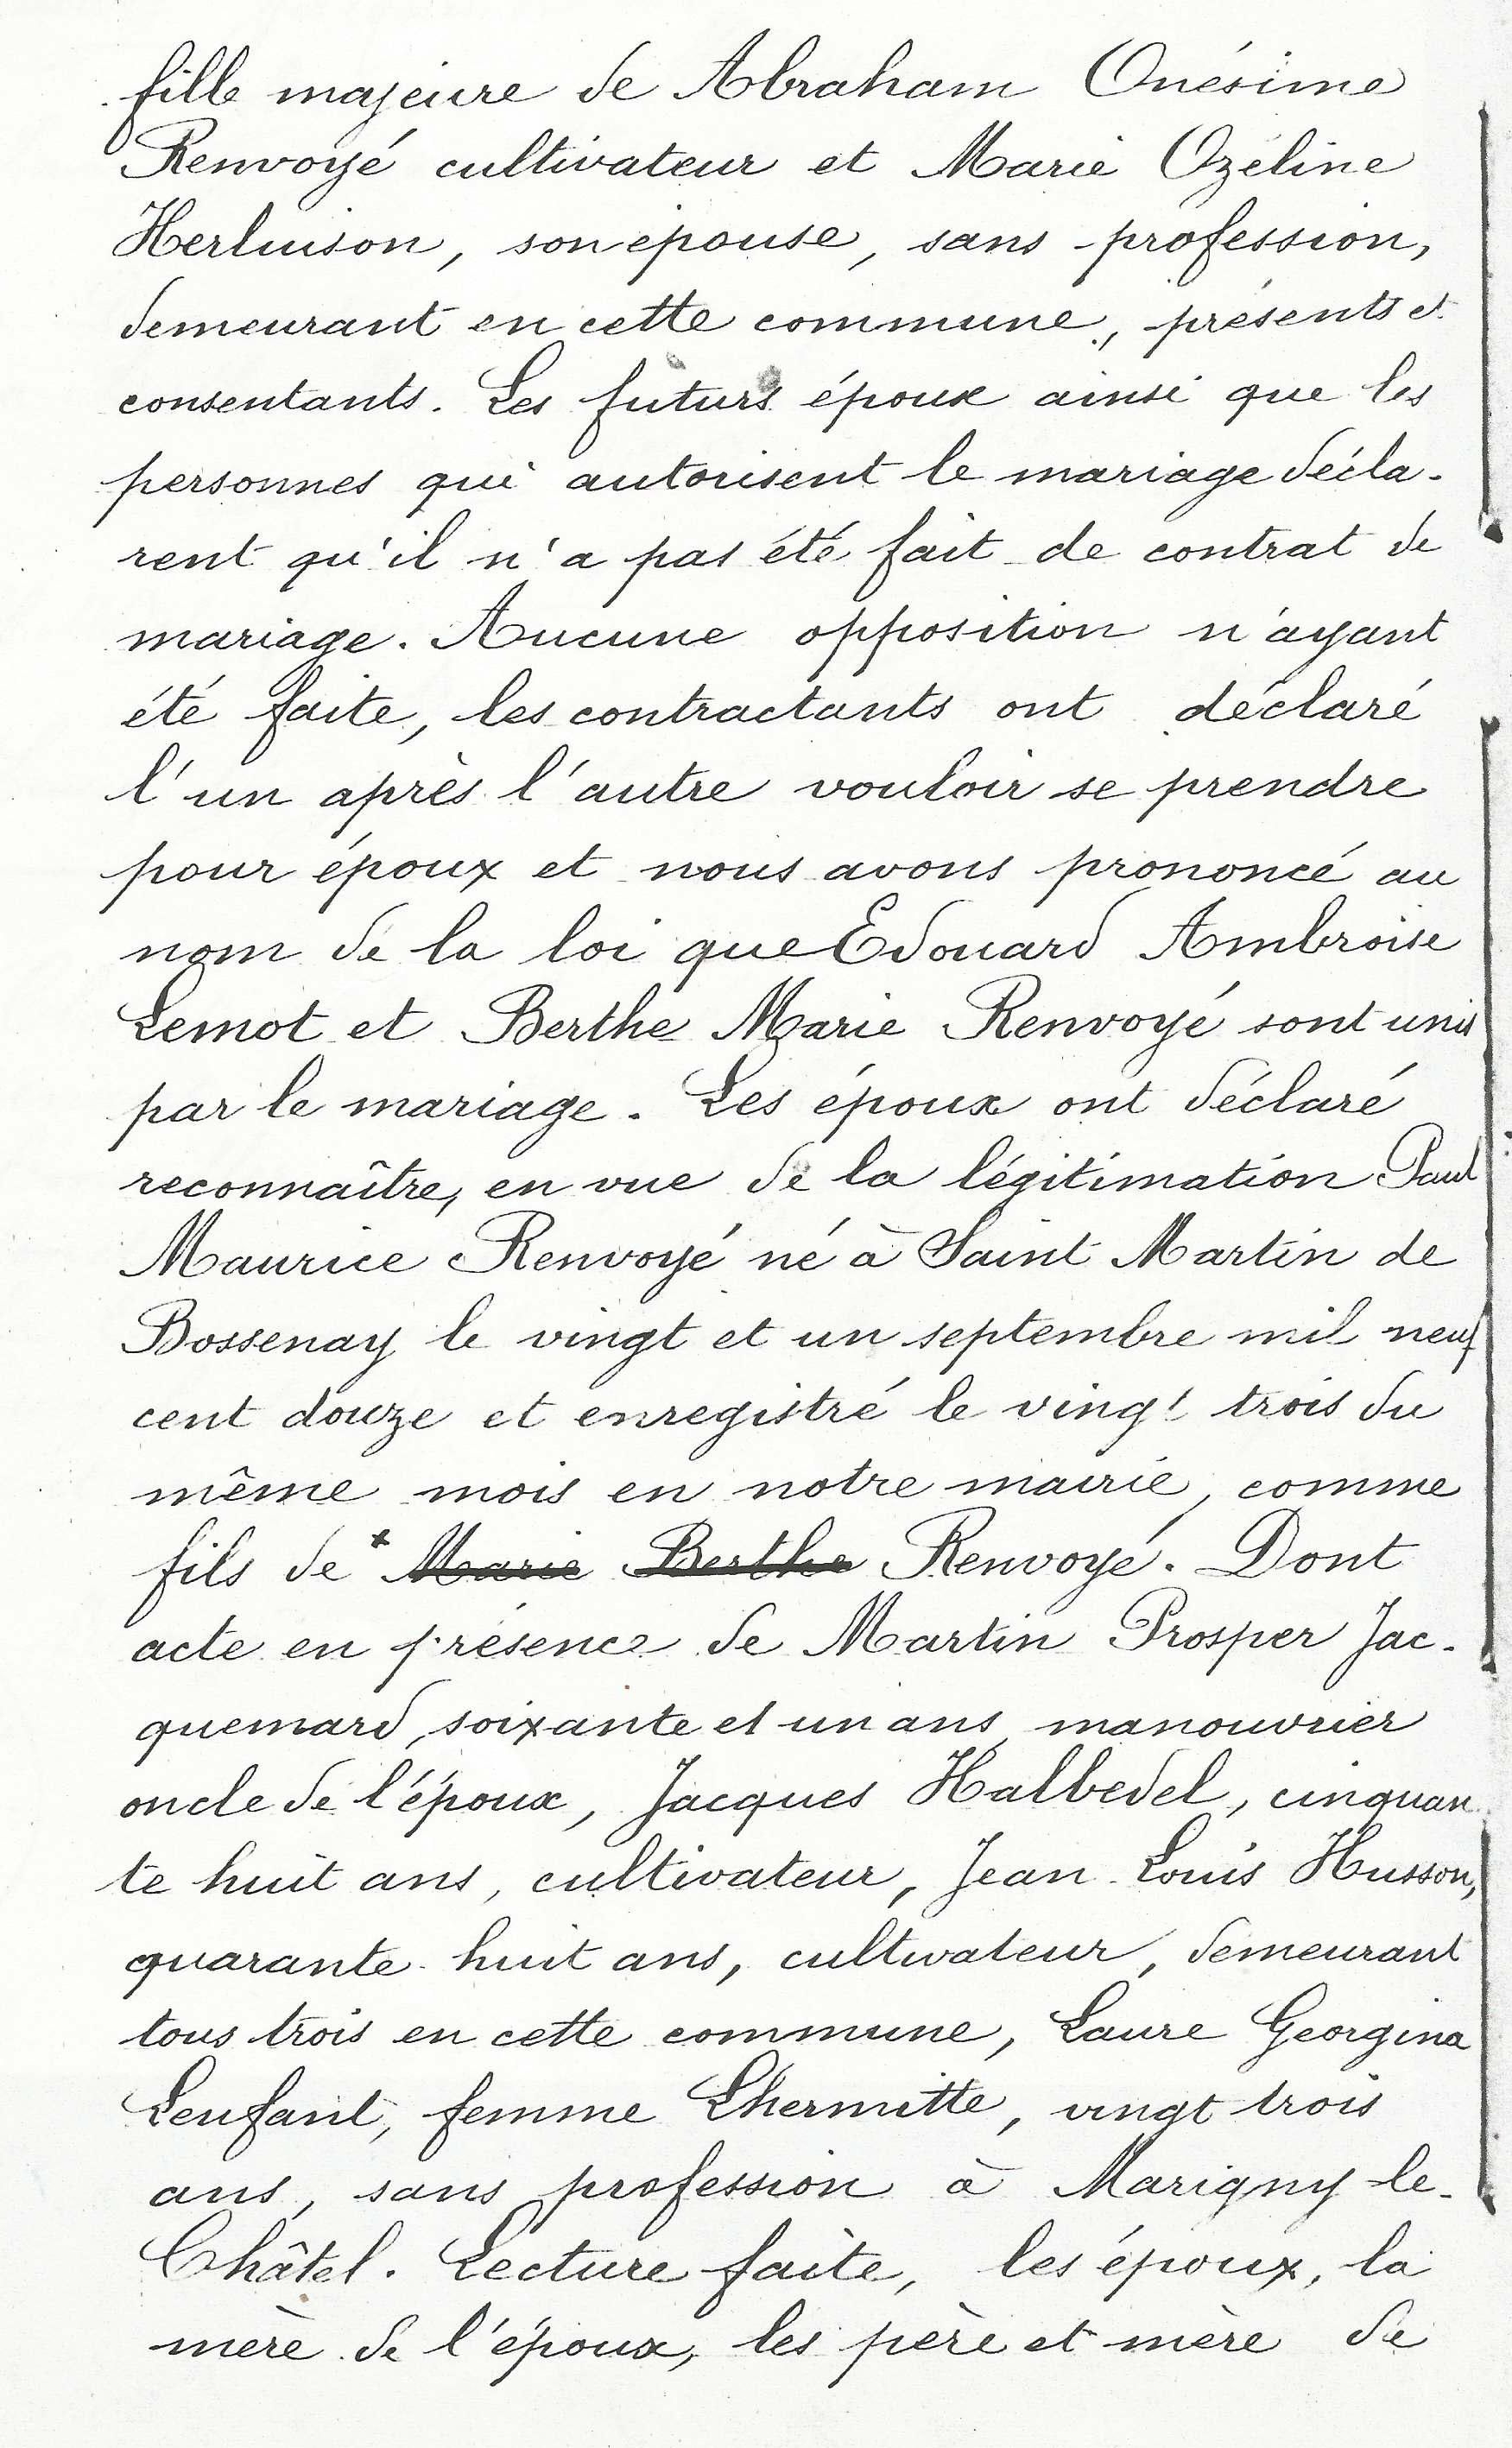 fille majeure de Abraham Onésime
Renvoyé cultivateur et Marie Ozéline
Herluison, son épouse, sans profession,
demeurant en cette commune, présents et
consentants. Les futurs époux ainsi que les
personnes qui autorisent le mariage décla-
rent qu'il n'a pas été fait de contrat de
mariage. Aucune opposition n'ayant
été faite, les contractants ont déclaré
l'un après l'autre vouloir se prendre
pour époux et nous avons prononcé au
nom de la loi que Edouard Ambroise
Lemot et Berthe Marie Renvoyé sont unis
par le mariage. Les époux ont déclaré
reconnaître, en vue de la légitimation Paul
Maurice Renvoyé né à Saint Martin de
Bossenay le vingt et un septembre mil neuf
cent douze et enregistré le vingt trois du
même mois en notre mairie, comme
fils de * Marie Berthe Renvoyé. Dont
acte en présence de Martin Prosper Jac-
quemard, soixante et un ans, manouvrier
oncle de l'époux, Jacques Halbedel, cinquan
te huit ans, cultivateur, Jean Louis Husson,
quarante-huit ans, cultivateur, demeurant
tous trois en cette commune, Laure Georgina
Lenfant, femme Lhermitte, vingt trois
ans, sans profession à Marigny-le-
Châtel. Lecture faite, les époux, la
mère de l'époux, les père et mère de